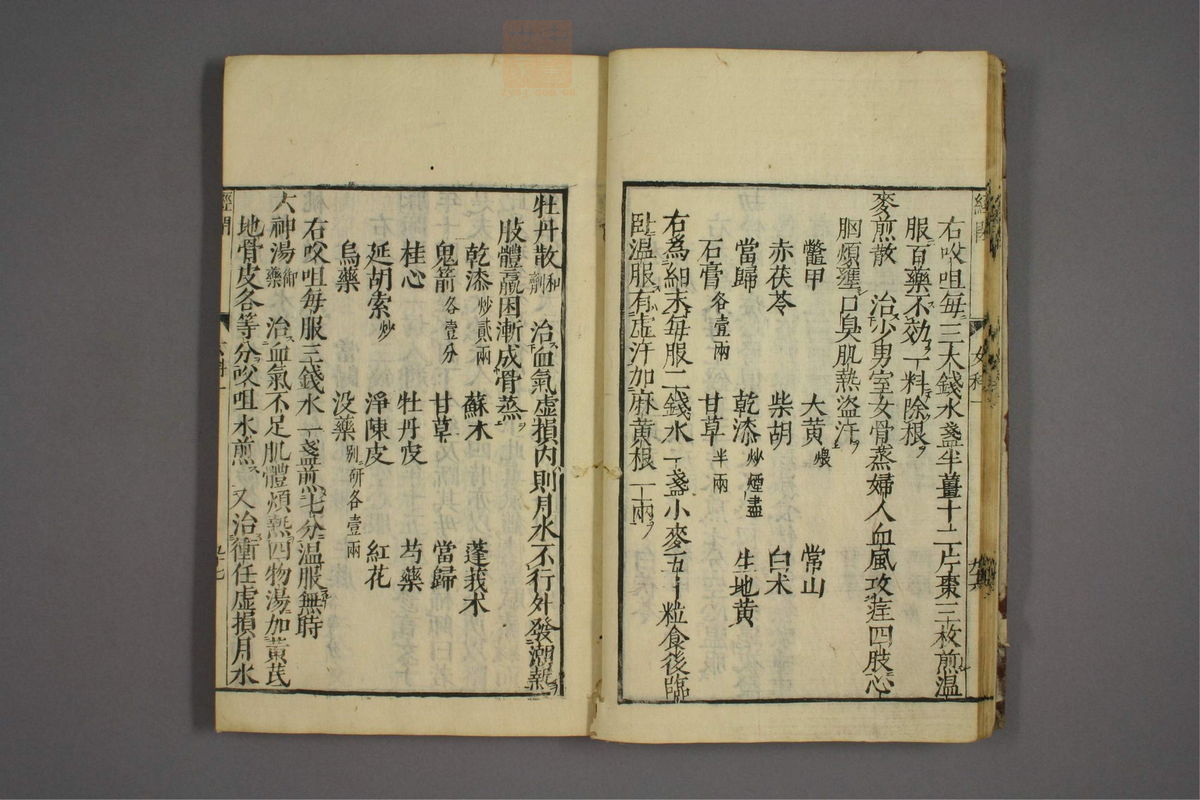 右㕮咀每三大錢水盞半薑十二片棗三枚煎溫
服百藥不効一料除根
麥煎散 治少男室女骨蒸婦人血風攻疰四肢心
胸煩壅口臭肌熱盜汗
鱉甲 大黃煨 常山
赤茯苓 柴胡 白术
當歸 乾漆炒煙盡 生地黄
石膏各壹兩 甘草半兩
右為細末每服二錢水一盞小麥五十粒食後臨
臥溫服有虛汗加麻黄根一兩
牡丹散和劑 治血氣虛損內則月水不行外發潮熱
肢體羸困漸成骨蒸
乾漆炒貳兩 蘇木 蓬莪术
鬼箭各壹分 甘草 當歸
桂心 牡丹皮 芍藥
延胡索炒 淨陳皮 紅花
烏藥 没藥別研各壹兩
右㕮咀每服三錢水一盞煎七分溫服無時
六神湯御藥 治血氣不足肌體煩熱四物湯加黃芪
地骨皮各等分㕮咀水煎 又治衝任虛損月水